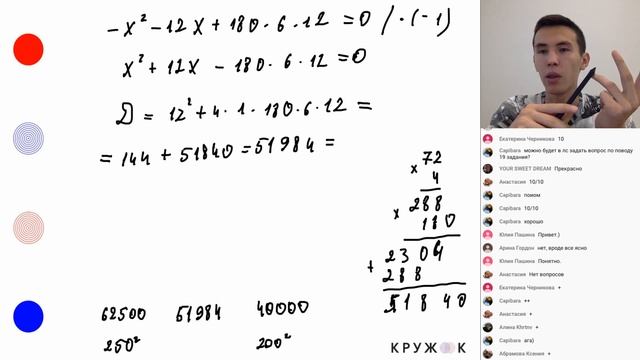 -x² - 12x + 180 · 6 · 12 = 0 / · (-1)
x² + 12x - 180 · 6 · 12 = 0
D = 12² + 4 · 1 · 180 · 6 · 12 =
= 144 + 51840 = 51984 =
× 72
4
288
× 180
2304
+ 288
51840
62500 51984 40000
250² 200²
КРУЖОК
Екатерина Черникова 10
Capibara можно будет в лс задать вопрос по поводу
19 задания?
YOUR SWEET DREAM Прекрасно
Анастасия 10/10
Capibara поиом
Capibara 10/10
Capibara хорошо
Юлия Пашина Привет.)
Арина Гордон нет, вроде все ясно
Юлия Пашина Понятно.
Анастасия Нет вопросов
Екатерина Черникова +
Capibara ++
Анастасия +
Алина Khrtnv +
Capibara ага)
Абрамова Ксения +